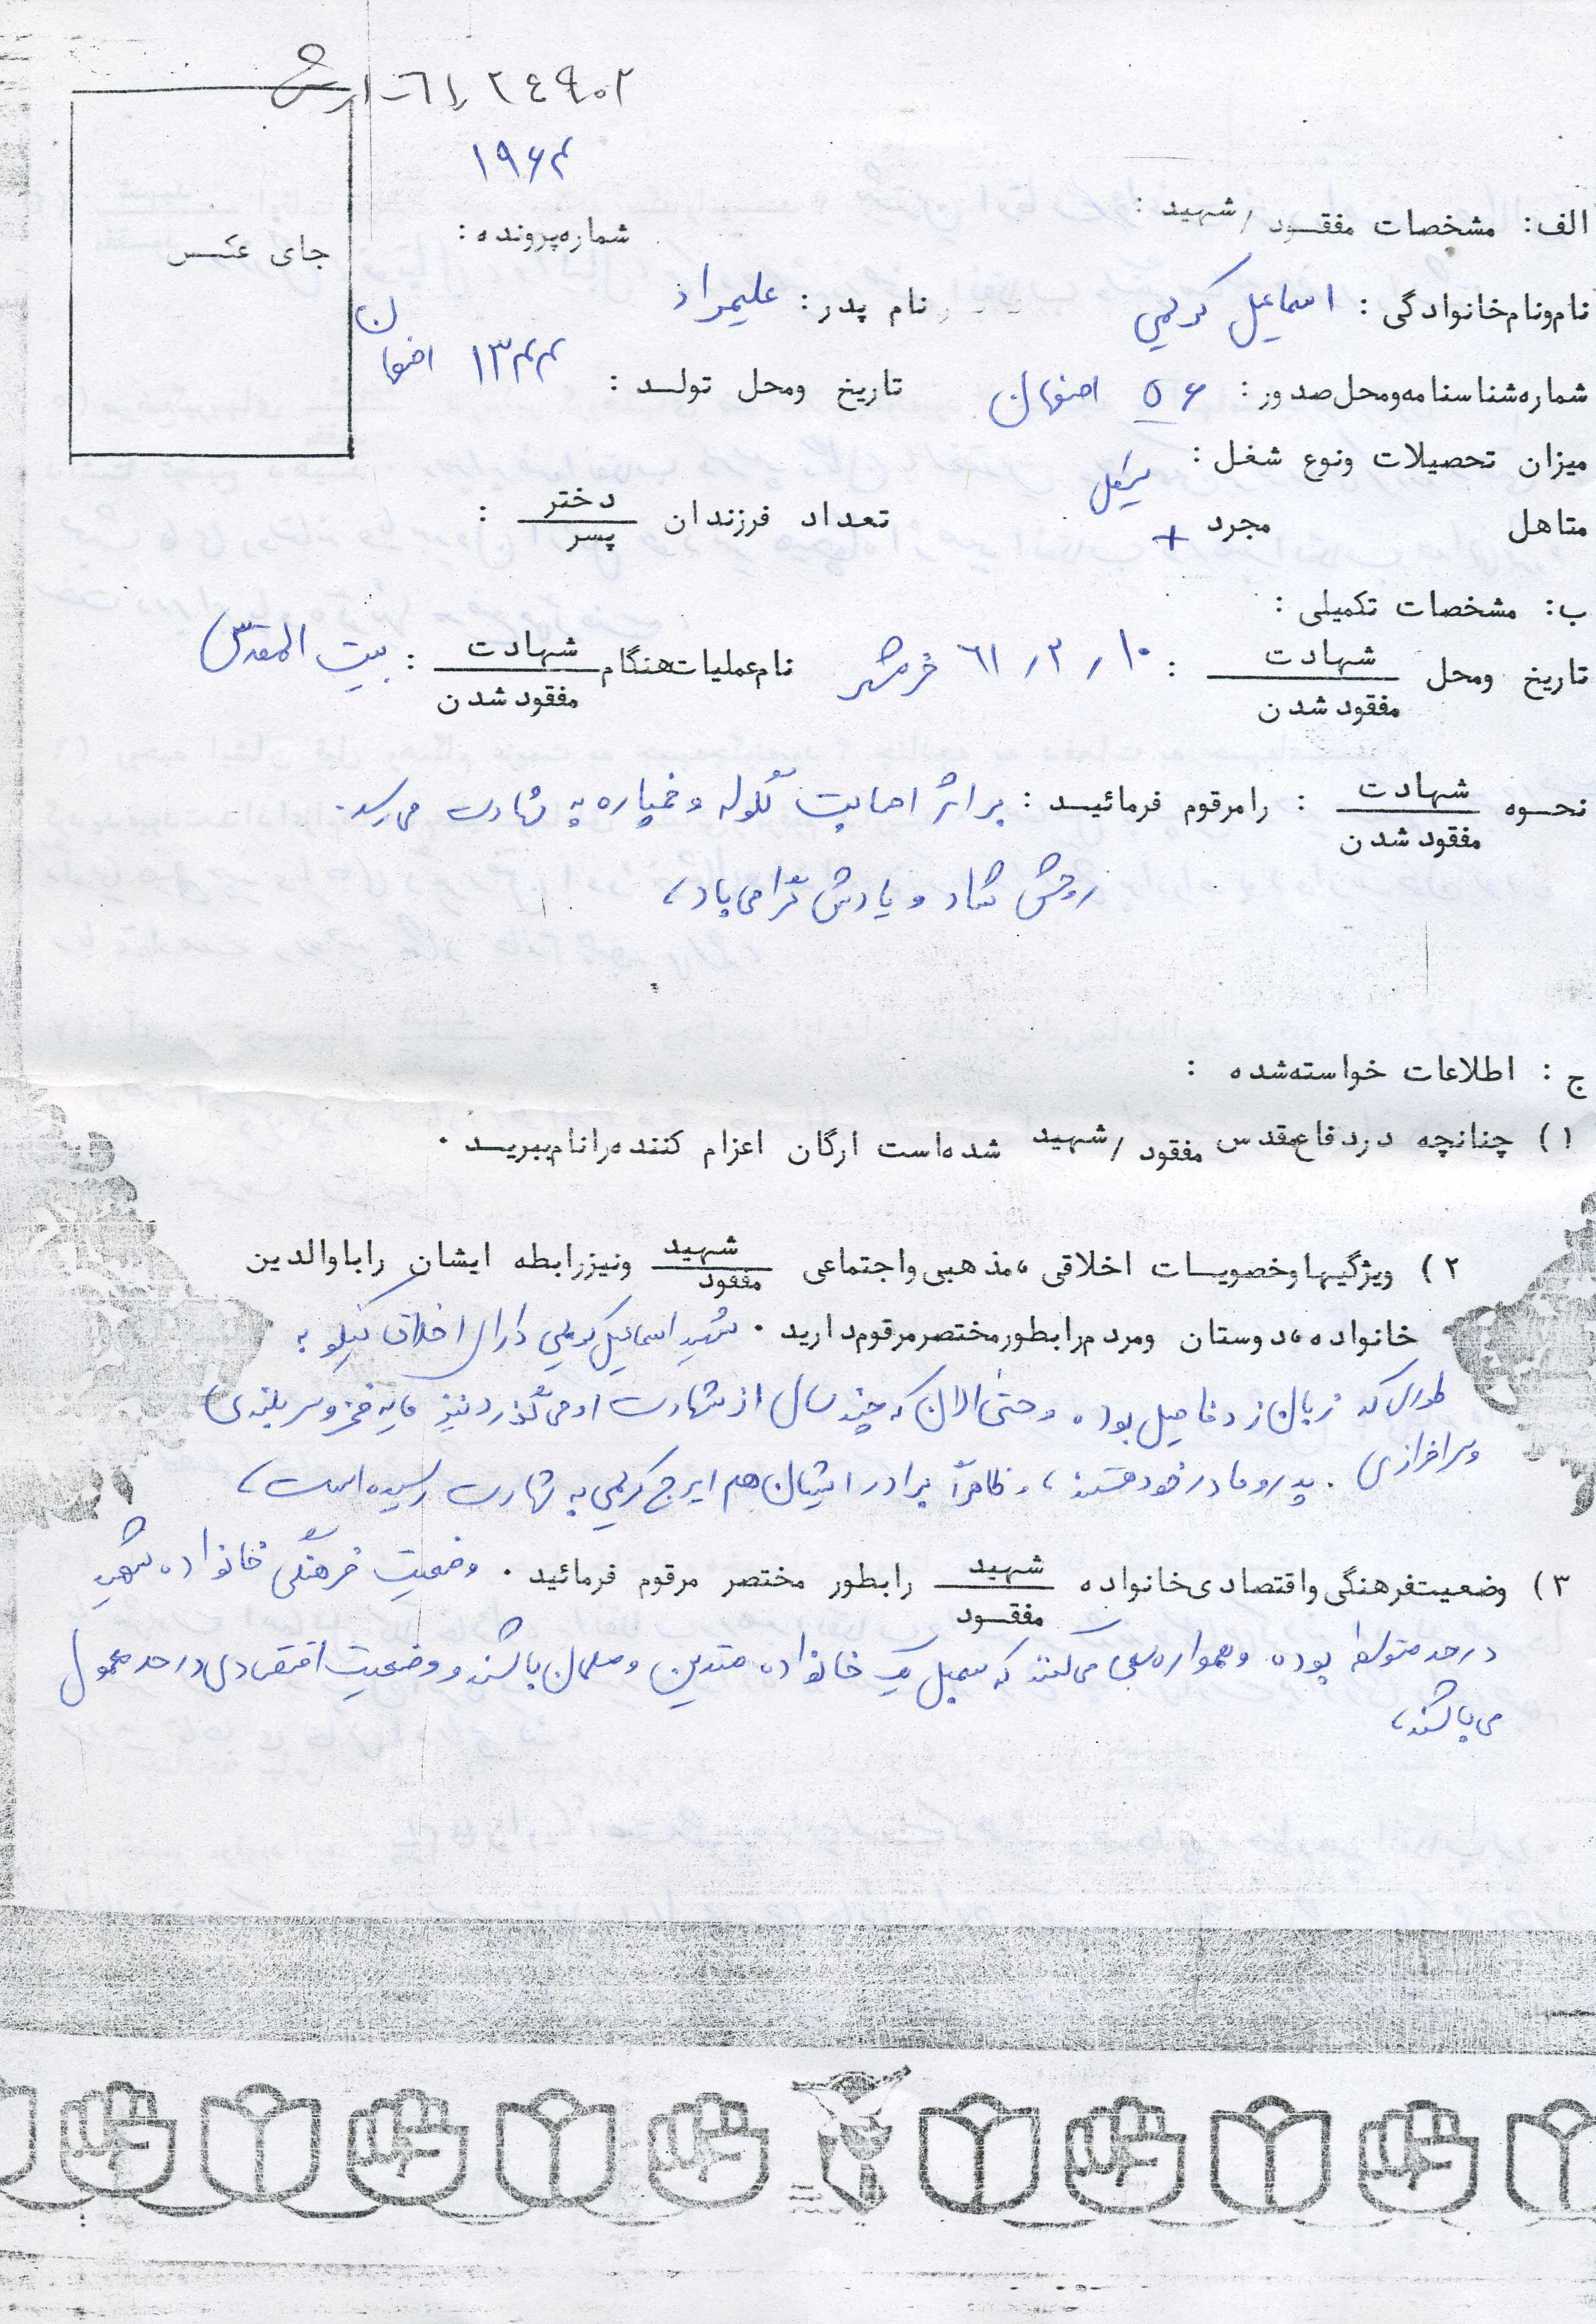 ۲۴۹۰۲
۱۹۶۴
الف: مشخصات مفقود/شهید:
شماره پرونده:
جای عکس
نام و نام خانوادگی: اسماعیل کریمی نام پدر: علیمراد
شماره شناسنامه و محل صدور: ۵۶ اصفهان تاریخ و محل تولد: ۱۳۴۴ اصفهان
میزان تحصیلات و نوع شغل:
متاهل مجرد + تعداد فرزندان دختر/پسر:
ب: مشخصات تکمیلی:
تاریخ و محل شهادت/مفقود شدن: ۱۰/۲/۶۱ خرمشهر نام عملیات هنگام شهادت/مفقود شدن: بیت المقدس
نحوه شهادت/مفقود شدن: را مرقوم فرمائید: بر اثر اصابت گلوله و خمپاره به شهادت می رسد.
روحش شاد و یادش گرامی باد،
ج: اطلاعات خواسته شده:
۱) چنانچه در دفاع مقدس مفقود/شهید شده است ارگان اعزام کننده را نام ببرید.
۲) ویژگیها و خصویسات اخلاقی، مذهبی و اجتماعی شهید/مفقود و نیز رابطه ایشان را با والدین
خانواده، دوستان و مردم را بطور مختصر مرقوم دارید. شهید اسماعیل کریمی دارای اخلاق نیکو به
طوری که زبان زد فامیل بوده و حتی الان که چند سال از شهادت او می گذرد نیز مایه فخر و سر بلندی
و سرافرازی. پدر و مادر خود هستند، و ظاهراً برادر ایشان هم ایرج کریمی به شهادت رسیده است،
۳) وضعیت فرهنگی و اقتصادی خانواده شهید/مفقود را بطور مختصر مرقوم فرمائید. وضعیت فرهنگی خانواده شهید
در حد متوسط بوده و همواره سعی می کنند که سمبل یک خانواده متدین و مسلمان باشند و وضعیت اقتصادی در حد معمول
می باشند،